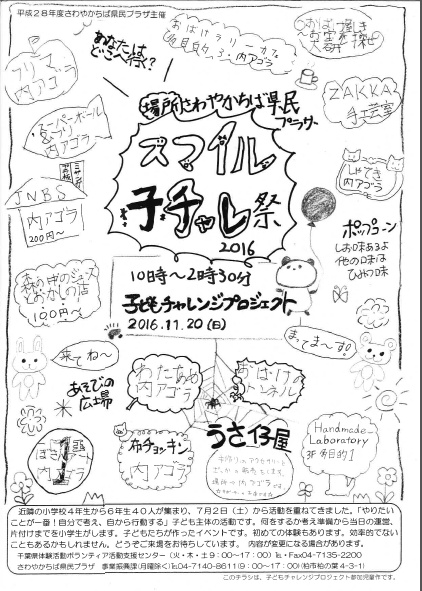 平成28年度さわやかちば県民プラザ主催
あなたは
どこへ行く?
おばけラリーカフェ
内アゴラ
フリマ
内アゴラ
場所さわやかちば県民
プラザ
ZAKKA
手工芸室
スーパーボール
内アゴラ
スマイル
子チャレ祭
2016
しゃてき
内アゴラ
JNBS
内アゴラ
200円~
ポップコーン
しお味あるよ
他の味は
ひみつ味
10時~2時30分
子どもチャレンジプロジェクト
2016.11.20(日)
森の中のジュース
とおかしの店
120円~
まってま~す!
来てね~
わたあめ
内アゴラ
おばけの
トンネル
あそびの
広場
うさ仔屋
布チョッキン
内アゴラ
Handmade
Laboratory
3F 多目的1
近隣の小学校4年生から6年生40人が集まり、7月2日(土)から活動を重ねてきました。「やりたい
ことが一番!自分で考え、自から行動する」子ども主体の活動です。何をするか考え準備から当日の運営、
片付けまでを小学生がします。子どもたちが作ったイベントです。初めての体験もあります。効率的でない
こともあるかもしれません。どうぞご来場をお待ちしています。 内容が変更になる場合があります。
千葉県体験活動ボランティア活動支援センター(火・木・土9:00~17:00)Tel・Fax04-7135-2200
さわやかちば県民プラザ 事業振興課(月曜除く)Tel04-7140-8611(9:00~17:00)(柏市柏の葉4-3-1)
このチラシは、子どもチャレンジプロジェクト参加児童作です。